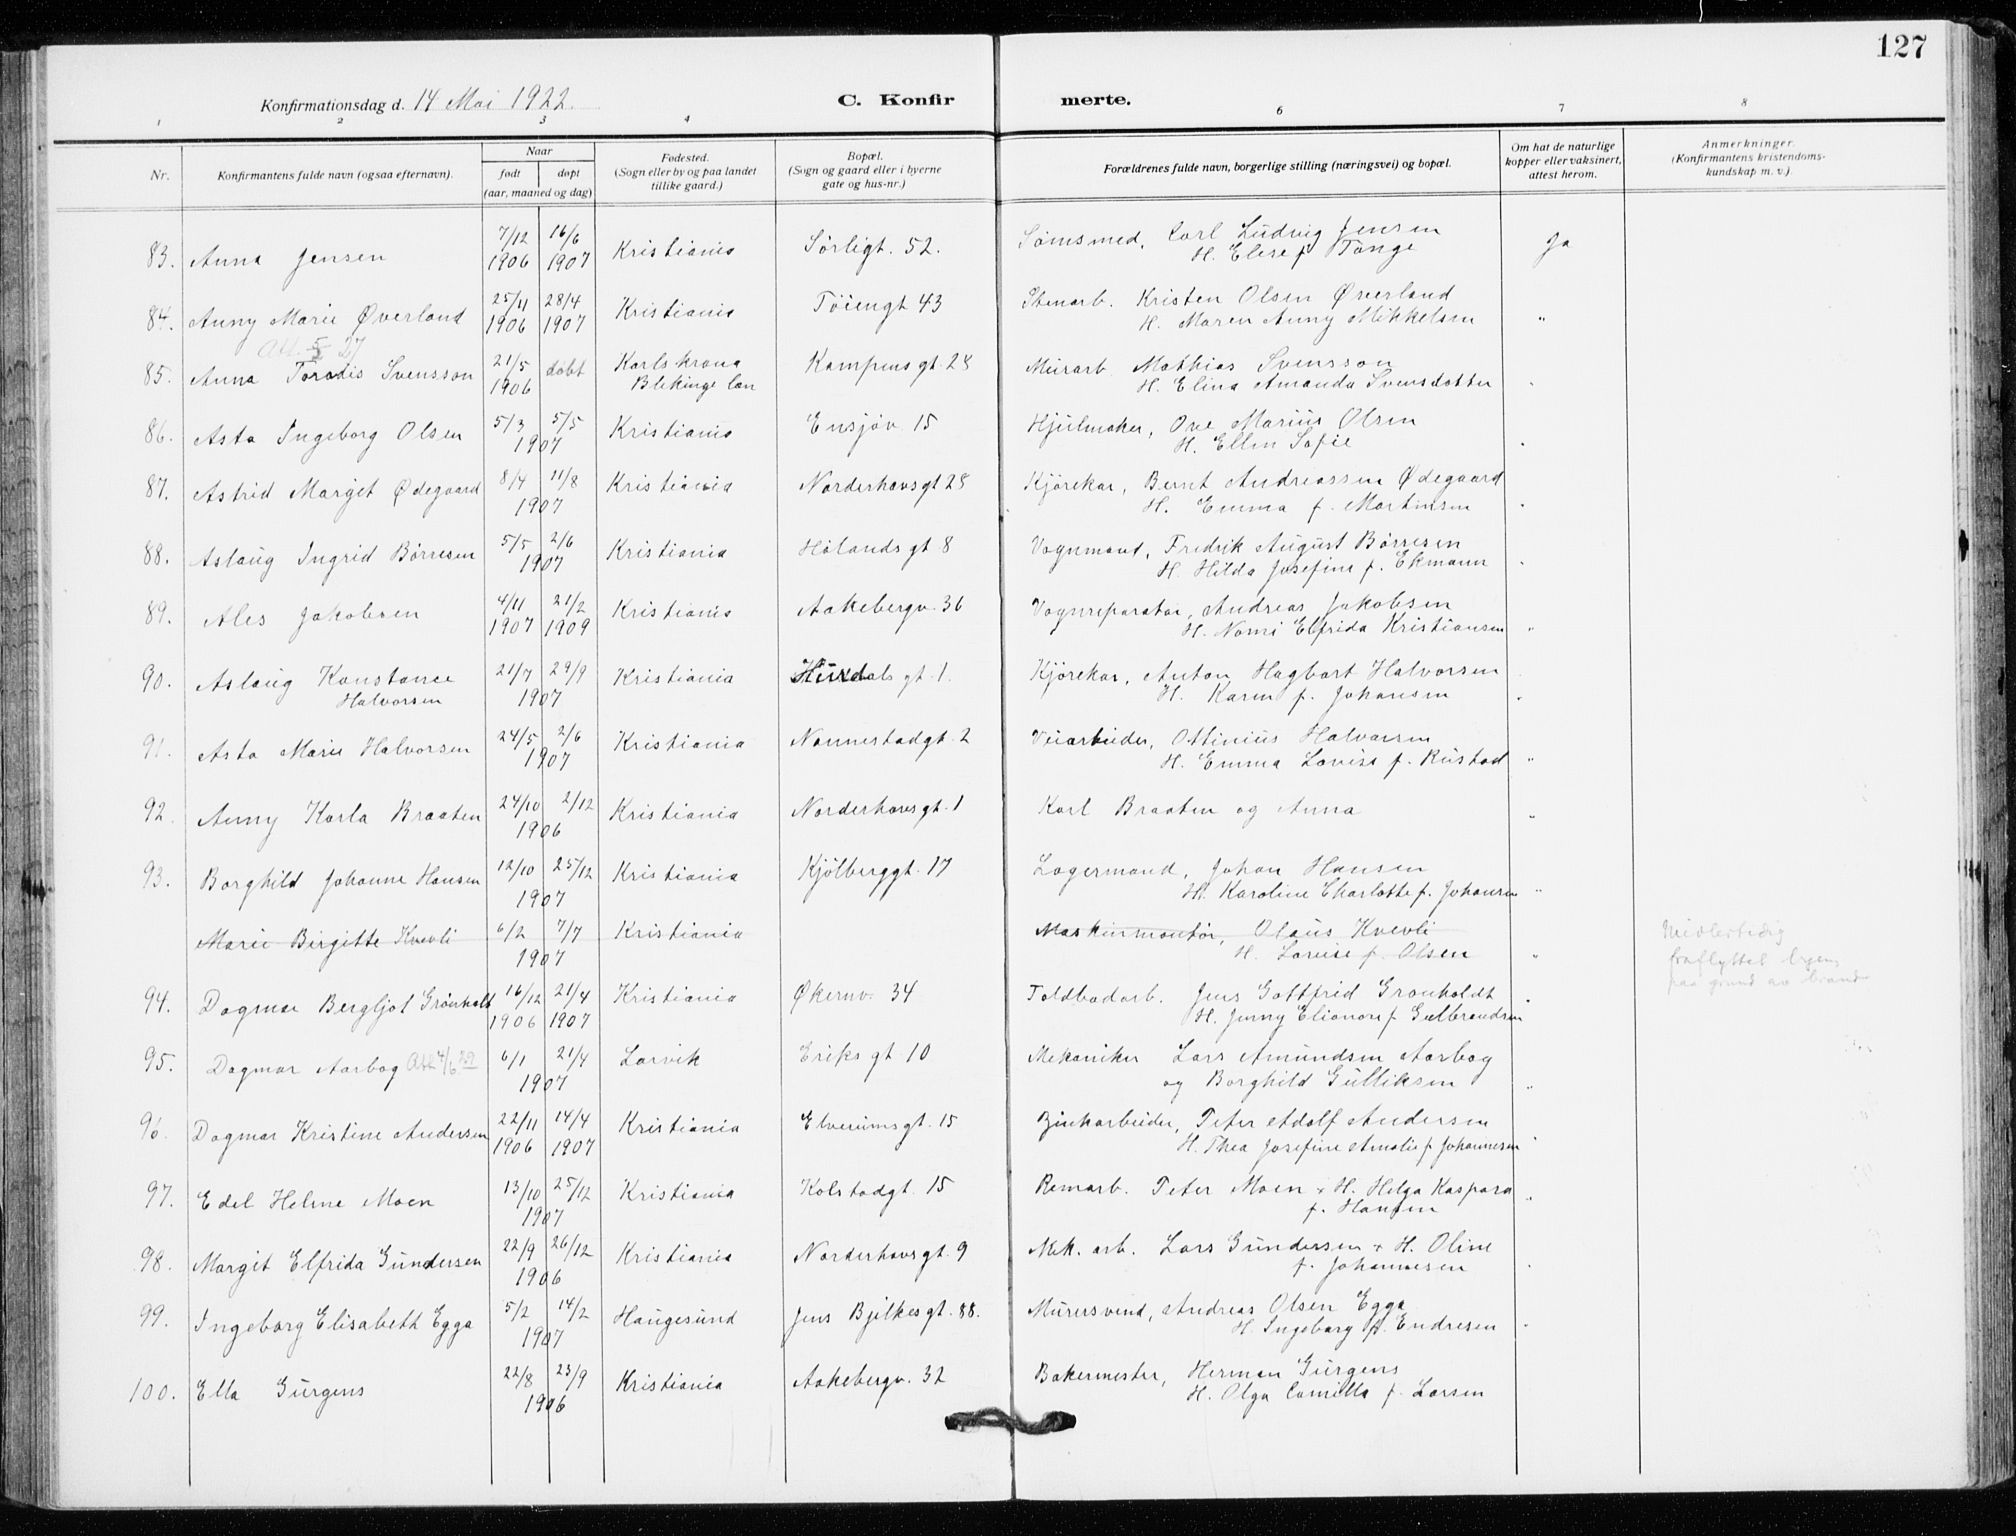 127
Konfirmationsdag d. 14 Mai 1922. C. Konfir merte.
1 2 3 4 6 7 8
Nr. Konfirmantens fulde navn (ogsaa efternavn). Naar født døpt (aar, maaned og dag) Fødested. (Sogn eller by og paa landet tillike gaard.) Bopæl. (Sogn og gaard eller i byerne gate og hus-nr.) Forældrenes fulde navn, borgerlige stilling (næringsvei) og bopæl. Om hat de naturlige kopper eller vaksinert, attest herom. Anmerkninger. (Konfirmantens kristendoms-kundskap m. v.).
83. Anna Jensen 7/12 1906 16/6 1907 Kristiania Sørligt. 52. Sømsmed, Carl Ludvig Jensen Ja
H. Elise f. Tange
84. Anny Marie Øverland 25/11 1906 28/4 1907 Kristiania Tøiengt 43 Stenarb. Kristen Olsen Øverland
H. Maren Anny Mikkelsen "
85. Anna Torodis Svensson 21/5 1906 døbt Karlskrona Kampensgt. 28 Murarb. Mathias Svensson
Blekinge län H. Elina Amanda Svensdotter "
86. Asta Ingeborg Olsen 5/3 5/5 1907 Kristiania Ensjøv. 15 Hjulmaker, Ove Marius Olsen
H. Ellen Sofie "
87. Astrid Margit Ødegaard 8/4 11/8 1907 Kristiania Norderhovsgt 28 Kjørekar, Bernt Andreassen Ødegaard
H. Emma f. Martinsen "
88. Aslaug Ingrid Børresen 5/5 2/6 1907 Kristiania Hølandsgt 8 Vognmand, Fredrik August Børresen
H. Hilda Josefine f. Ekmann "
89. Ales Jakobsen 4/11 1907 21/2 1909 Kristiania Aakebergv. 36 Vognreparatør, Andreas Jakobsen
H. Nomi Elfrida Kristiansen "
90. Aslaug Konstance 21/7 29/9 1907 Kristiania Hurdalsgt. 1. Kjørekar, Anton Hagbart Halvorsen
Halvorsen H. Karen f. Johansen "
91. Asta Marie Halvorsen 24/5 2/6 1907 Kristiania Nannestadgt. 2 Veiarbeider, Ottinius Halvorsen
H. Emma Lovise f. Rustad "
92. Anny Karla Braaten 24/10 2/12 1906 Kristiania Norderhovsgt. 1 Karl Braaten og Anna "
93. Borghild Johanne Hansen 12/10 25/12 1907 Kristiania Kjølberggt. 17 Lagermand, Johan Hansen
H. Karoline Charlotte f. Johansen "
Marie Birgitte Kvevli 6/2 7/7 1907 Kristiania Maskinmontør, Olaus Kvevli Midlertidig
H. Lovise f. Olsen " fraflyttet byen
paa grund av brand
94. Dagmar Bergljot Grönholdt 16/12 1906 21/4 1907 Kristiania Økernv. 34 Toldbodarb. Jens Gottfrid Gronholdt "
H. Jenny Elionore f. Gulbrandsen
95. Dagmar Aarbog Att 4/6 29 6/1 21/4 1907 Larvik Eriks gt. 10 Mekaniker Lars Amundsen Aarbog
og Borghild Gulliksen "
96. Dagmar Kristine Andersen 22/11 1906 14/4 1907 Kristiania Elverumsgt. 15 Zinkarbeider, Peter Adolf Andersen
H. Thea Josefine Amalie f. Johannesen "
97. Edel Helene Moen 13/10 25/12 1907 Kristiania Kolstadgt. 15 Remarb. Peter Moen + H. Helga Kaspara "
f. Hansen
98. Margit Elfrida Gundersen 22/9 26/12 1906 Kristiania Norderhovsgt. 9 Mek. arb. Lars Gundersen + H. Oline
f. Johannesen "
99. Ingeborg Elisabeth Egga 5/2 14/2 1907 Haugesund Jens Bjelkesgt. 88. Murersvend, Andreas Olsen Egga
H. Ingeborg f. Endresen "
100. Ella Gürgens 22/8 23/9 1906 Kristiania Aakebergv. 32 Bakermester, Herman Gürgens
H. Olga Camilla f. Larsen